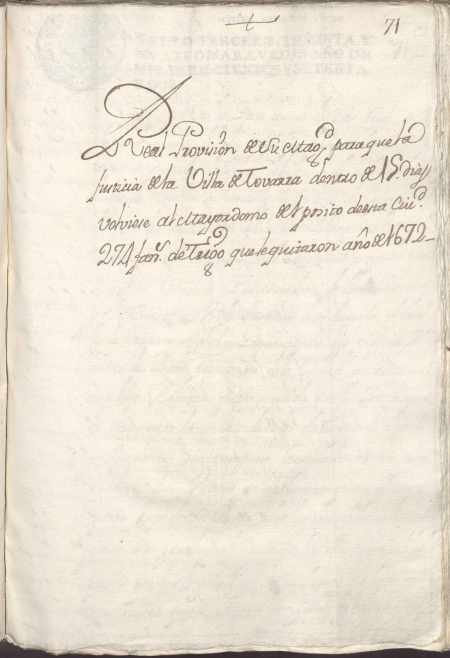 71
Real Provision de Su Magᵈ para que la
Justicia de la Villa de Tovarra dentro de 15 dias
volviese al Mayordomo del posito de esta Ciuᵈ
274 fanˢ de Trigo que le quitaron año de 1672